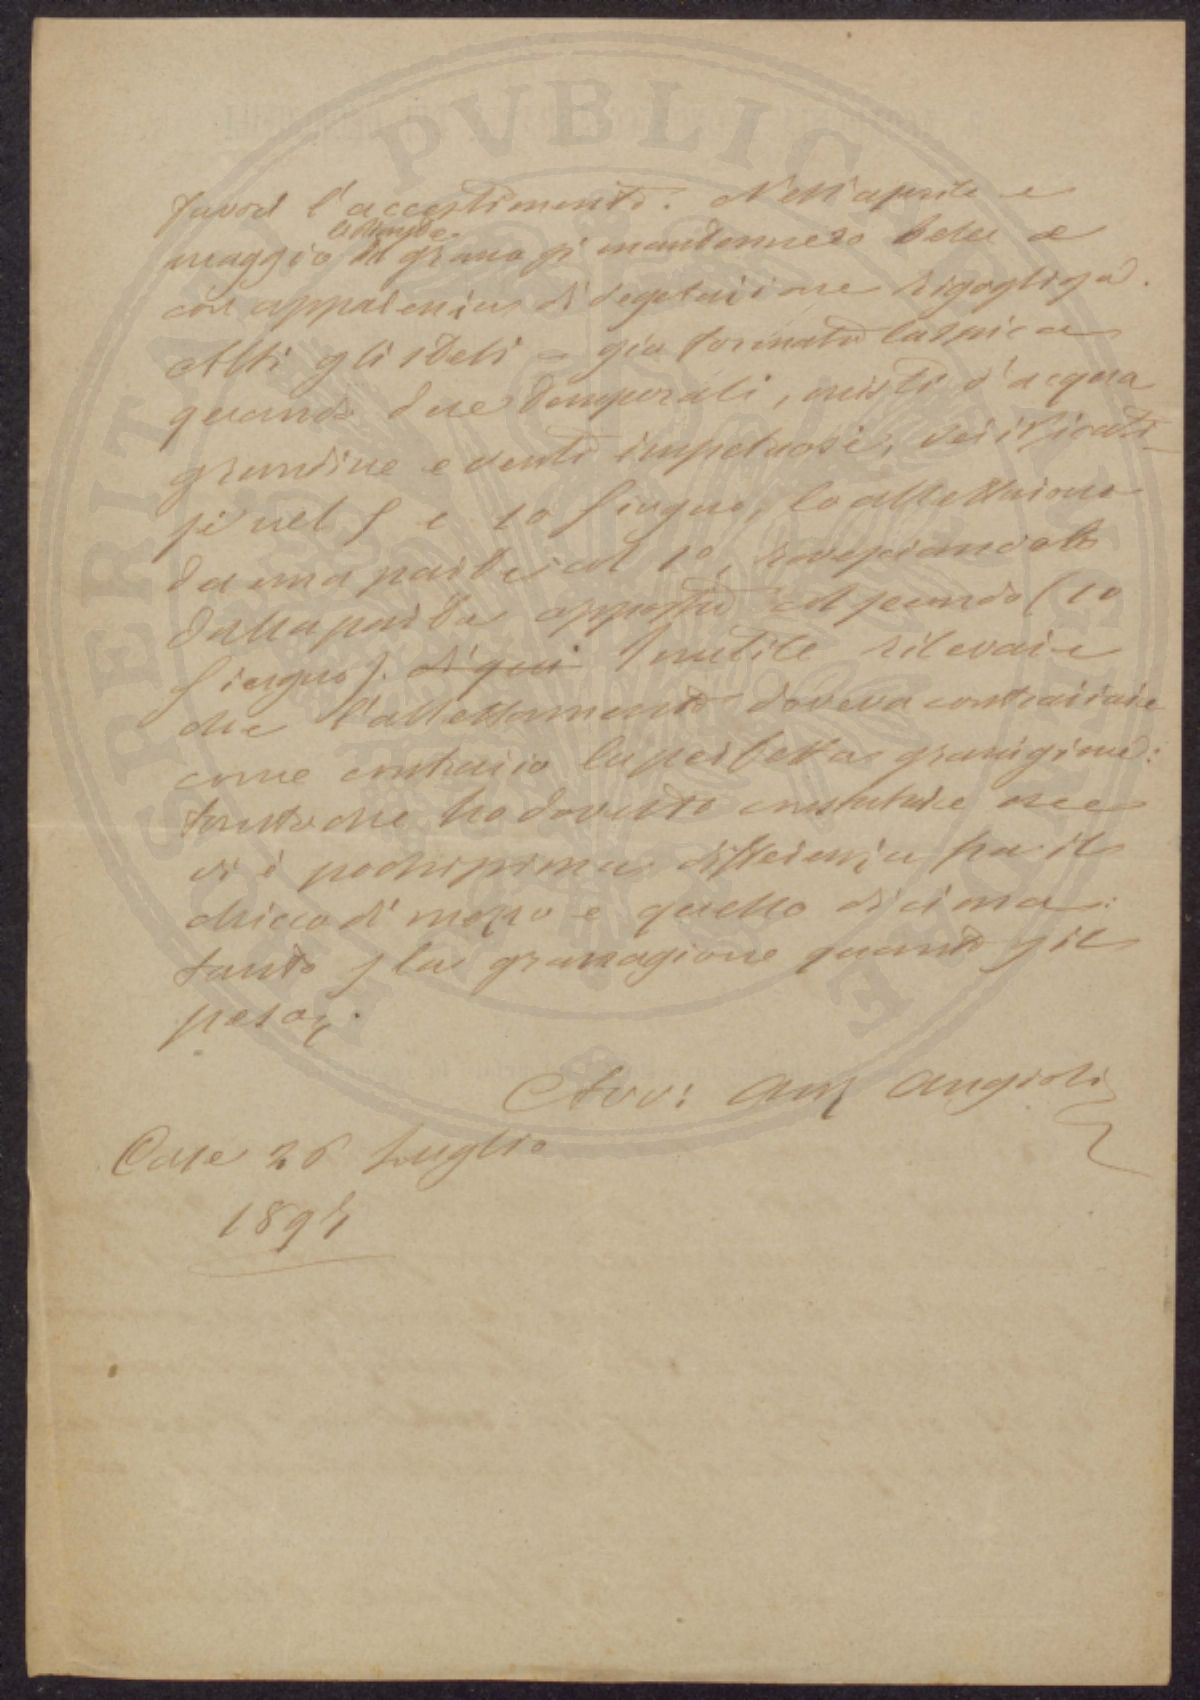 PVBLICAE
PROSPERITATI
favorì l'accestimento. Nell'aprile e
maggio il grano si mantenne bello e
con apparenza di vegetazione rigogliosa.
Alti gli steli e già formata la spica
quando due temporali, misti d'acqua
grandine e venti impetuosi, verificati-
si nel 5 e 10 Giugno, lo allettarono
da una parte al 1°, rovesciandolo
dalla parte opposta al secondo (10
Giugno). Di qui Inutile rilevare
che l'allettamento doveva contrariare
come contrariò la perfetta granigione:
tantoche ho dovuto constatare che
vi è pochissima differenza fra il
chicco di mezzo e quello di cima:
tanto p la granagione quanto p il
peso.
Avv: Angioli
Case 26 Luglio
1894